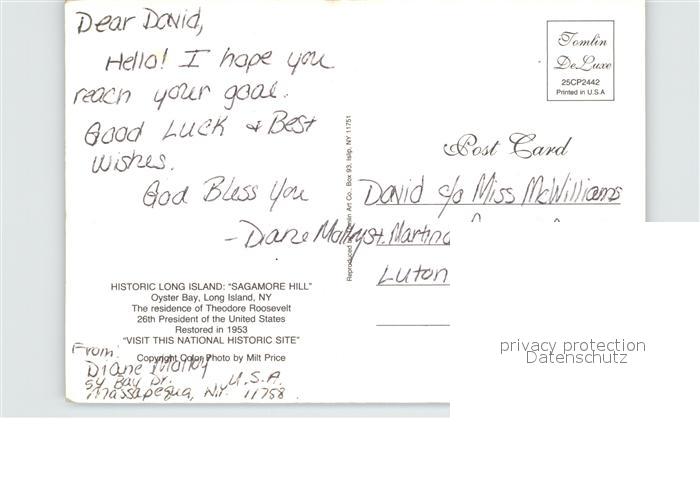 Dear David,
Hello! I hope you
reach your goal.
Good Luck & Best
Wishes.
God Bless You
- Diane Malloy
HISTORIC LONG ISLAND: "SAGAMORE HILL"
Oyster Bay, Long Island, NY
The residence of Theodore Roosevelt
26th President of the United States
Restored in 1953
"VISIT THIS NATIONAL HISTORIC SITE"
Copyright Color Photo by Milt Price
From:
Diane Malloy
54 Bay Dr.
Massapequa, N.Y. 11758
U.S.A.
Reproduced by Tomlin Art Co., Box 93, Islip, NY 11751
Tomlin
DeLuxe
25CP2442
Printed in U.S.A
Post Card
David c/o Miss McWilliams
St. Martin
Luton
privacy protection
Datenschutz